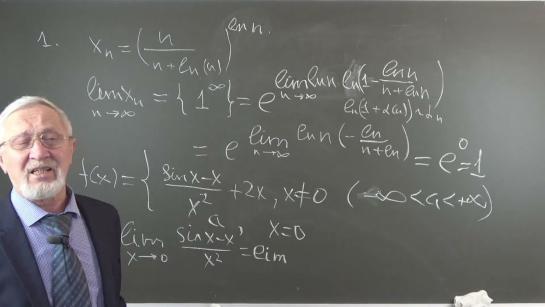 1. xₙ = (n / (n + ln(n)))^(ln n).
lim xₙ = {1^∞} = e^(lim ln n ln(1 - ln n / (n + ln n)))
n→∞ n→∞ ln(1+α(n)) ~ αₙ
= e^(lim ln n (- ln / (n + ln))) = e⁰ = 1
n→∞
f(x) = { (sin x - x) / x² + 2x, x ≠ 0 (-∞ < a < +∞)
a, x = 0
lim (sin x - x) / x² = lim
x→0